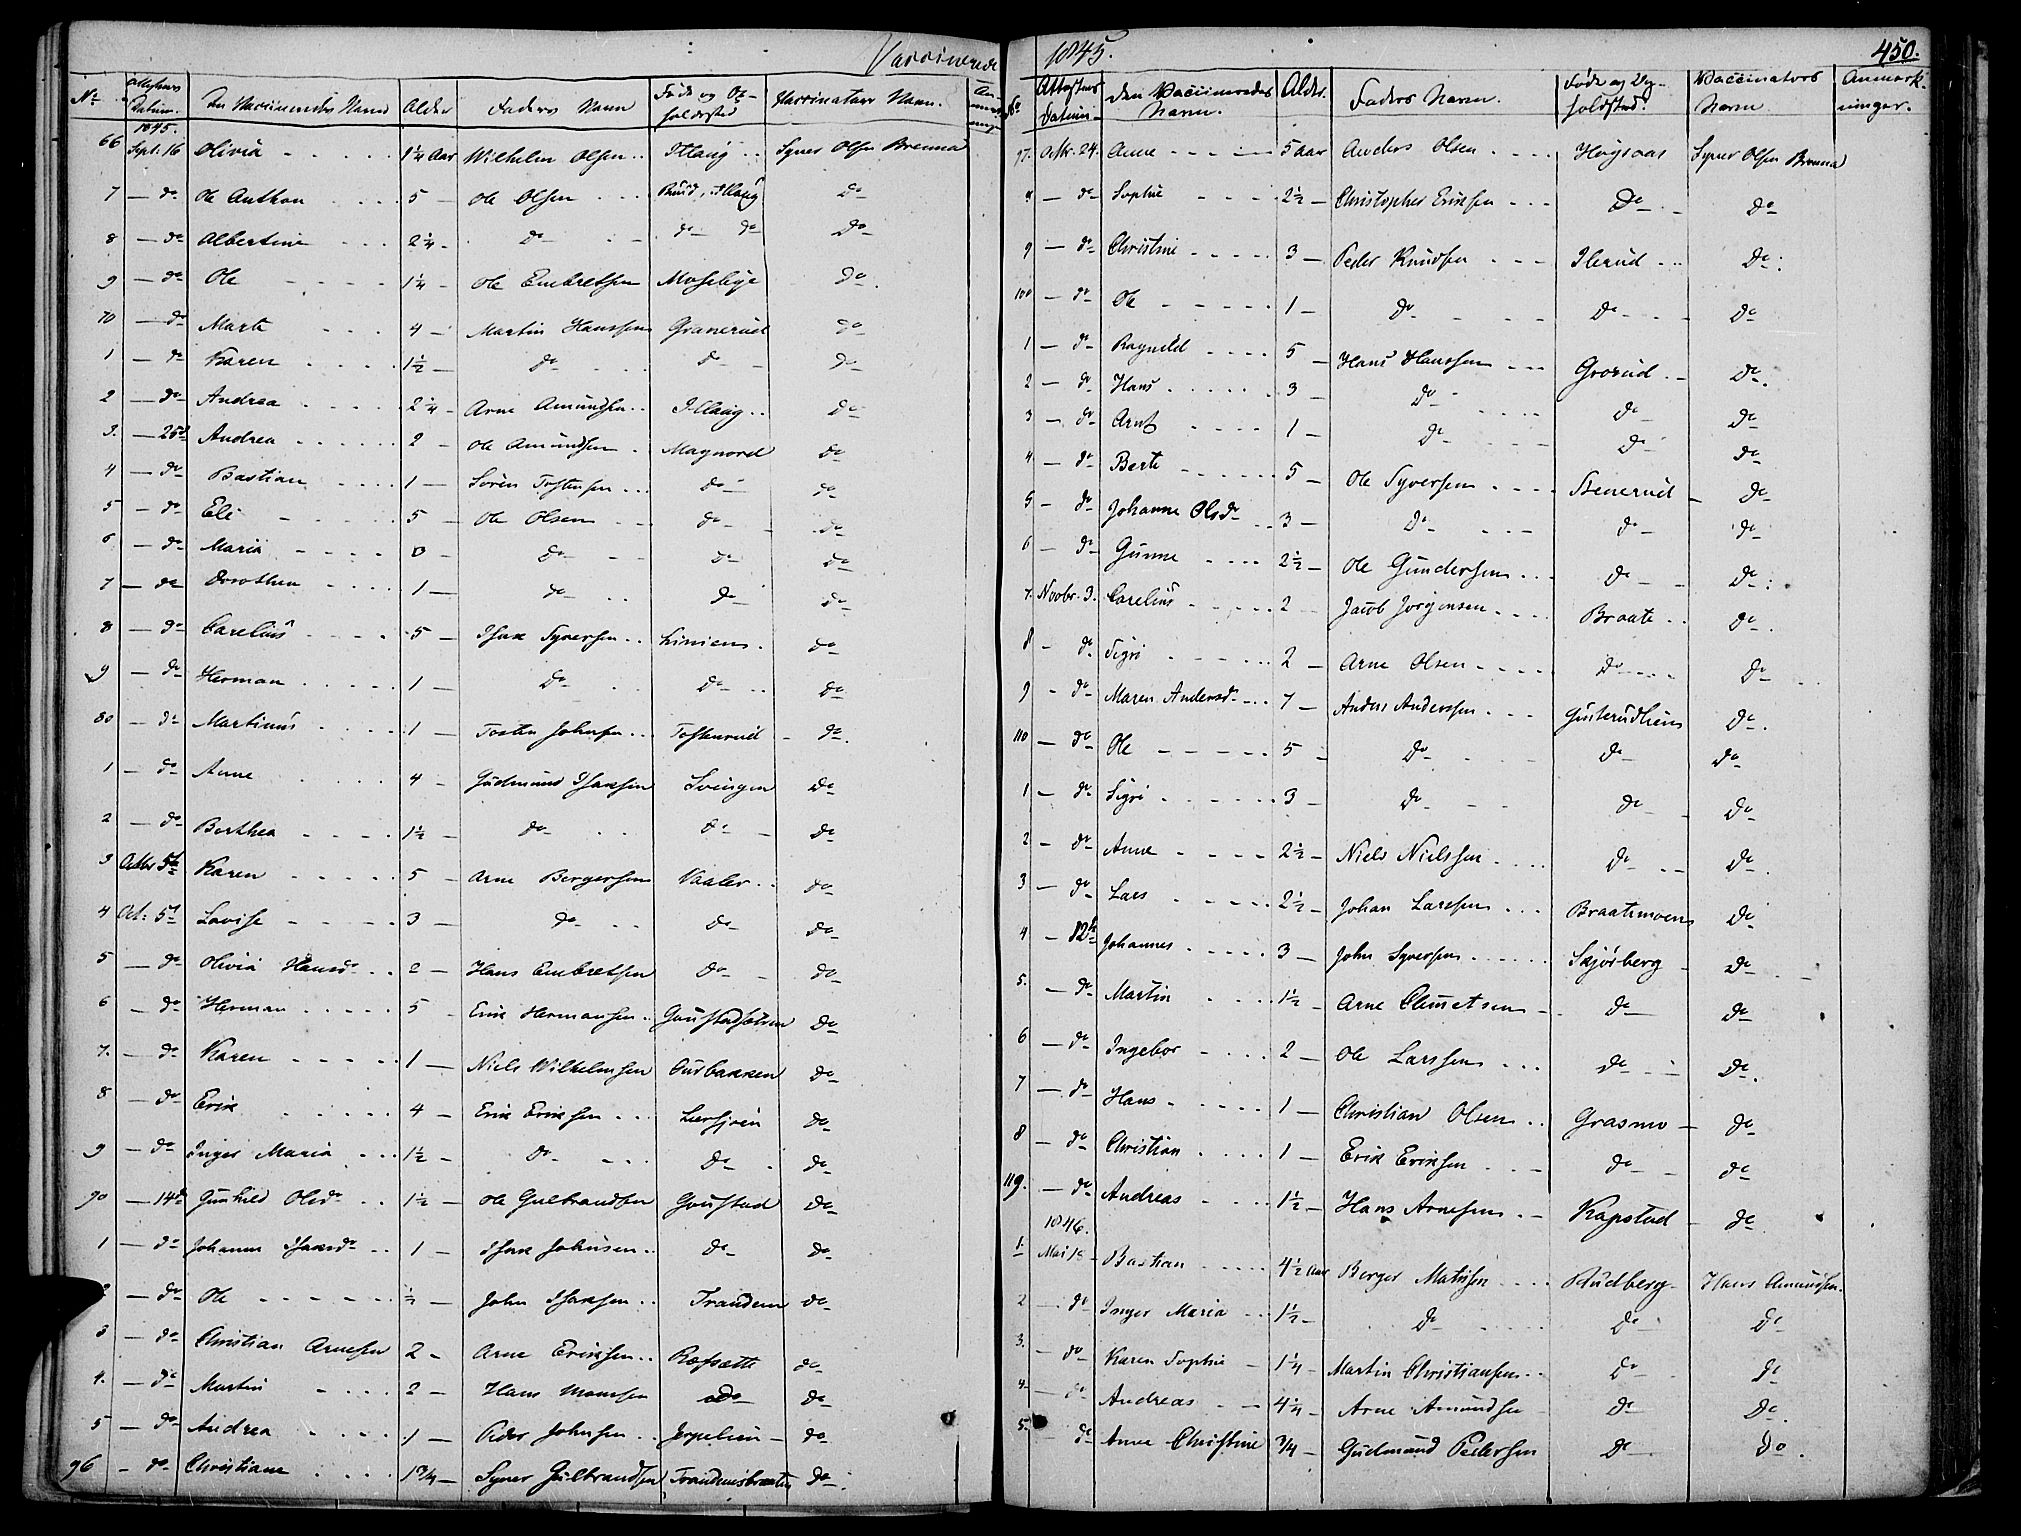 Vaccinerede
No | Attestens Datum. | Den Vaccineredes Navn | Alder | Faders Navn | Føde og Op-holdssted | Vaccinateurs Navn.
66 | 1845. Sept. 16 | Olivia | 1 1/4 Aar | Wilhelm Olsen | Haug | Syver Olsen Brenna
7 | — do | Ole Anthon | 5 — | Ole Olsen | Ruud, Haug | do
8 | — do | Albertine | 2 1/4 — | do | do do | do
9 | — do | Ole | 1 1/4 — | Ole Embretsen | Mosebye | do
70 | — do | Marte | 4 — | Martin Hanssen | Granerud | do
1 | — do | Karen | 1 1/2 — | do | do | do
2 | — do | Andrea | 2 1/4 — | Arne Amundsen | Haug | do
3. | — 25de | Andrea | 2 — | Ole Amundsen | Magnord | do
4 | — do | Bastian | 1 — | Søren Tostensen | do | do
5 | — do | Eli | 5 — | Ole Olsen | do | do
6 | — do | Maria | 3 — | do | do | do
7 | — do | Dorothea | 1 — | do | do | do
8 | — do | Carelius | 5 — | Isak Syversen | Liniens | do
9 | — do | Herman | 1 — | do | do | do
80 | — do | Martinus | 1 — | Tosten Johnsen | Tostenrud | do
1 | — do | Anne | 4 — | Gudmund Isaksen | Svingen | do
2 | — do | Berthea | 1 1/2 — | do | do | do
3 | Octbr 5te | Karen | 5 — | Arne Bergersen | Vaaler | do
4 | Oct: 5te | Lovise | 3 — | do | do | do
5 | — do | Olivia Hansdr | 2 — | Hans Embretsen | do | do
6 | — do | Herman | 5 — | Erik Hermansen | do
7. | — do | Karen | 1 — | Niels Wilhelmsen | Ousbakken | do
8 | — do | Erik | 4 — | Erik Eriksen | Leersjøen | do
9 | — do | Inger Maria | 1 1/2 — | do | do | do
90 | — 14de | Gunhild Olsdr | 1 1/2 — | Ole Gulbrandsen | Goustad | do
1 | — do | Johanne Isaksdr | 1 — | Isak Johnsen | do | do
2 | — do | Ole | 1/2 — | John Isaksen | Trandem | do
3 | — do | Christian Arnesen | 2 — | Arne Eriksen | Ræfsætte | do
4. | — do | Martin | 2 — | Hans Monssen | do | do
5 | — do | Andrea | 1 — | Peder Johnsen | Jerpelien | do
96 | — do | Christiane | 1 3/4 — | Syver Gulbrandsen | Trandemsbraaten | do
1845.
450.
No | Attestens Datum | Den Vaccineredes Navn. | Alder. | Faders Navn. | Føde og Op-holdssted. | Vaccinators Navn. | Anmærk-ninger.
97. | Octbr. 24. | Anne | 5 aar | Anders Olsen | Høgsaas | Syver Olsen Brenna
8 | — do | Sophie | 2 1/2 — | Christopher Eriksen | do | do
9 | — do | Christine | 3 — | Peder Knudsen | Ilerud | do
100 | — do | Ole | 1 — | do | do | do
1 | — do | Ragnild | 5 — | Hans Hanssen | Grorud | do
2 | — do | Hans | 3 — | do | do | do
3 | — do | Arnt | 1 — | do | do | do
4 | — do | Berte | 5 — | Ole Syversen | Stenerud | do
5 | — do | Johanne Olsdr | 3 — | do | do | do
6 | — do | Gunne | 2 1/2 — | Ole Gundersen | do | do
7. | Novbr. 3. | Carelius | 2 | Jacob Jørgensen | Braate | do
8 | — do | Sigri | 2 — | Arne Olsen | do | do
9 | — do | Maren Andersdr | 7 — | Anders Andersen | Gusterudhiens | do
110 | — do | Ole | 5 — | do | do | do
1 | — do | Sigri | 3 — | do | do | do
2 | — do | Anne | 2 1/2 — | Niels Nielssen | do | do
3 | — do | Lars | 2 1/2 — | Johan Larssen | Braatemoens | do
4 | — 12te | Johannes | 3 — | John Syversen | Skjørberg | do
5. | — do | Martin | 1 1/2 — | Arne Clemetsen | do | do
6 | — do | Ingebor | 2 — | Ole Larssen | do | do
7 | — do | Hans | 1 — | Christian Olsen | Grasmo | do
8 | — do | Christian | 1 — | Erik Eriksen | do | do
119. | — do | Andreas | 1 1/2 — | Hans Arnesen | Kapstad | do
1846.
1. | Mai 18 | Bastian | 4 1/2 Aar | Berger Matissen | Rudberg | Hans Amundsen
2 | — do | Inger Maria | 1 1/2 — | do | do | do
3. | — do | Karen Sophie | 1 1/4 — | Martin Christiansen | do | do
4 | — do | Andreas | 4 1/4 — | Arne Amundsen | do | do
5 | — do | Anne Christine | 3/4 — | Gudmund Pedersen | do | do